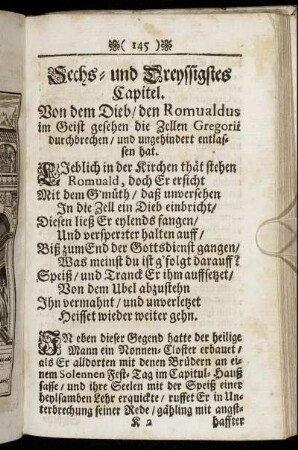 ( 145 )
Sechs- und Dreyssigstes
Capitel.
Von dem Dieb/ den Romualdus
im Geist gesehen die Zellen Gregorii
durchbrechen/ und ungehindert entlas-
sen hat.
LIeblich in der Kirchen thät stehen
Romuald, doch Er ersicht
Mit dem G'müth/ daß unversehen
In die Zell ein Dieb einbricht/
Diesen ließ Er eylends fangen/
Und versperrter halten auff/
Biß zum End der Gottsdienst gangen/
Was meinst du ist g'folgt darauff?
Speiß/ und Tranck Er ihm auffsetzet/
Von dem Ubel abzustehn
Ihn vermahnt/ und unverletzet
Heisset wieder weiter gehn.
IN eben dieser Gegend hatte der heilige
Mann ein Nonnen-Closter erbauet/
als Er alldorten mit denen Brüdern an ei-
nem Solennen Fest-Tag im Capitul-Hauß
sasse/ und ihre Seelen mit der Speiß einer
heylsamben Lehr erquickte/ ruffet Er in Un-
terbrechung seiner Rede/ gähling mit angst-
K 2 haffter